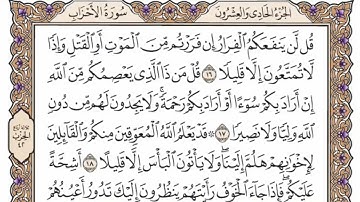 الجزء الحادي والعشرون
سورة الأحزاب
قُل لَّن يَنفَعَكُمُ ٱلْفِرَارُ إِن فَرَرْتُم مِّنَ ٱلْمَوْتِ أَوِ ٱلْقَتْلِ وَإِذًا
لَّا تُمَتَّعُونَ إِلَّا قَلِيلًا ١٦ قُلْ مَن ذَا ٱلَّذِي يَعْصِمُكُم مِّنَ ٱللَّهِ
إِنْ أَرَادَ بِكُمْ سُوٓءًا أَوْ أَرَادَ بِكُمْ رَحْمَةً ۚ وَلَا يَجِدُونَ لَهُم مِّن دُونِ
ٱللَّهِ وَلِيًّا وَلَا نَصِيرًا ١٧ قَدْ يَعْلَمُ ٱللَّهُ ٱلْمُعَوِّقِينَ مِنكُمْ وَٱلْقَآئِلِينَ
لِإِخْوَٰنِهِمْ هَلُمَّ إِلَيْنَا ۖ وَلَا يَأْتُونَ ٱلْبَأْسَ إِلَّا قَلِيلًا ١٨ أَشِحَّةً
عَلَيْكُمْ ۖ فَإِذَا جَآءَ ٱلْخَوْفُ رَأَيْتَهُمْ يَنظُرُونَ إِلَيْكَ تَدُورُ أَعْيُنُهُمْ